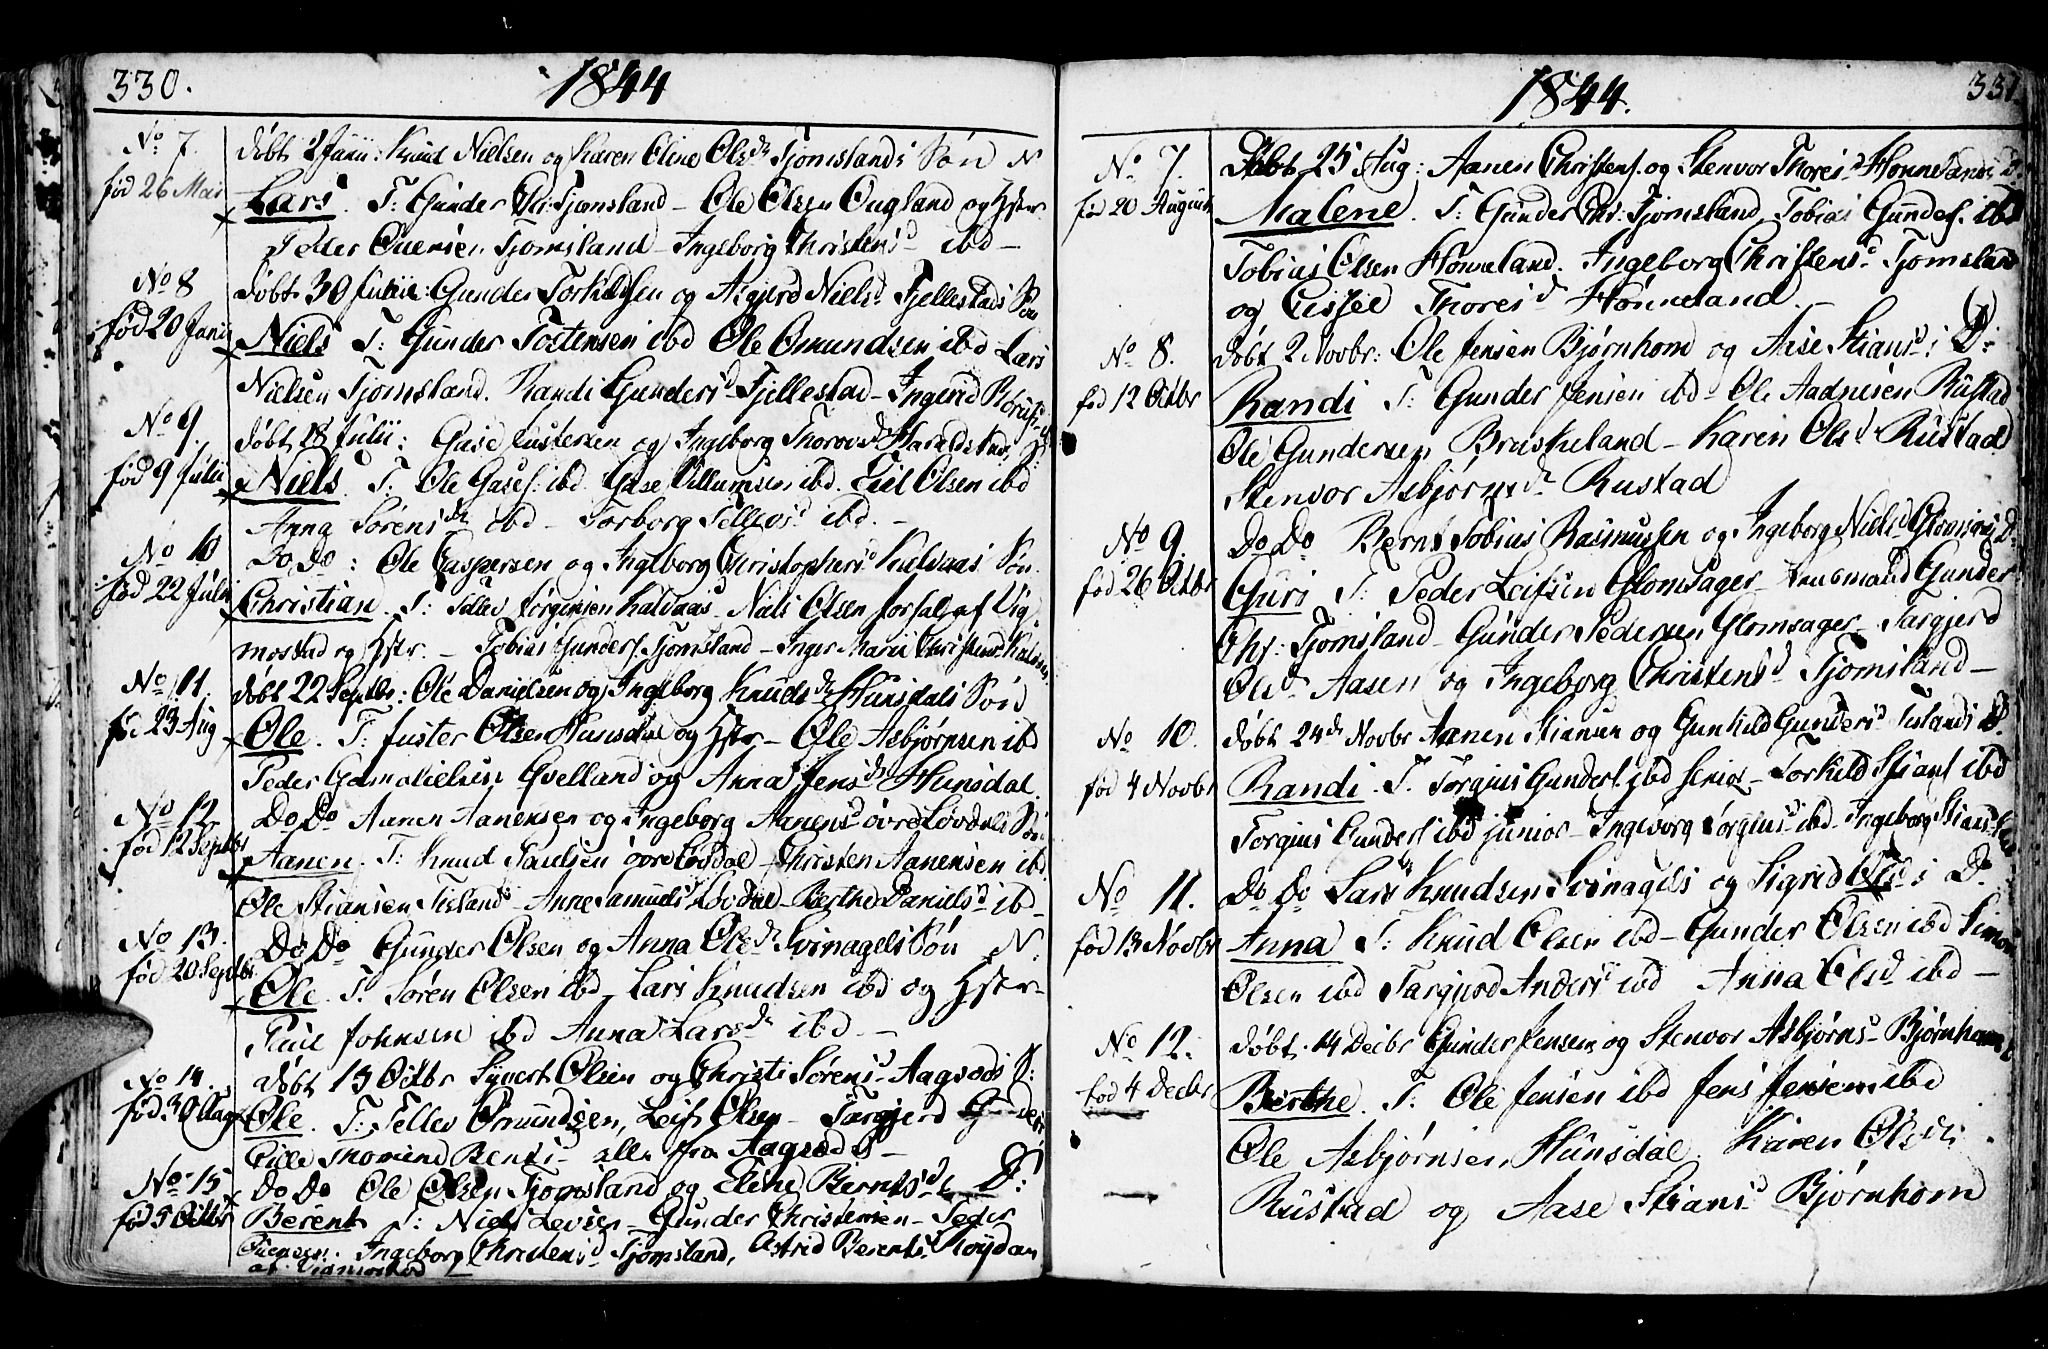 330.
1844
No 7.
fød 26 Mai
døbt 2 Junii: Knud Nielsen og Karen Oline Olsd. Tjomslands Søn N
Lars. T: Gunder Chr: Tjomsland - Ole Olsen Ougland og Hstr
Peder Ouensen Tjomsland - Ingeborg Christensd ibd -
No 8
fød 20 Junii
døbt 30 Junii: Gunder Torkildsen og Asgjerd Nielsd Fjellestads Søn
Niels T: Gunder Tostensen ibd Ole Omundsen ibd Lars
Nielsen Tjomsland. Randi Gundersd Fjellestad - Ingerid
No 9.
fød 9 Julii
døbt 18 Julii: Gase Justersen og Ingeborg Haraldstad
Niels T: Ole Gases. ibd Gase Villumsen ibd. Eiel Olsen ibd
Anna Sørensd. ibd - Torborg Tellevsd ibd. -
No 10
fød 22 Julii
Do Do: Ole Caspersen og Ingeborg Christophersd Kalvaas Søn
Christian. T: Tellev Jørgensen Kalvaas Niels Olsen Forsal af Vig
mostad og Hstr. - Tobias Gunders. Tjomsland - Inger Marie Christensd
No 11.
fød 23 Aug
døbt 22 Septbr: Ole Danielsen og Ingeborg Knudsd. Hunsdals Søn
Ole. T: Juster Olsen Hunsdal og Hstr - Ole Asbjørnsen ibd
Peder Gamalielsen Qvelland og Anna Jensd. Hunsdal.
No 12
fød 12 Septbr
Do Do Aanen Aanensen og Ingeborg Aanensd øvre Løvdals Søn
Aanen. T: Knud Paulsen øvre Løvdal - Christen Aanensen ibd.
Ole Stiansen Tisland - Anne Samuelsd Løvdal - Berthe Danielsd ibd -
No 13.
fød 20 Septbr
Do Do Gunder Olsen og Anna Olsd. Svinagels Søn N:
Ole. T: Søren Olsen ibd Lars Knudsen ibd og Hstr -
Paul Johnsen ibd Anna Larsd. ibd -
No 14.
fød 30 Aug
døbt 13 Octbr Syvert Olsen og Christi Sørensd Aagsods S:
Ole. T: Tellev Omundsen, Leif Olsen - Targjerd Gunders
Pille Thomine Bentsd - alle fra Aagsod -
No 15
fød 5 Octbr
Do Do Ole Olsen Tjomsland og Eline Berntsd. D:
Berent T: Niels Levsen - Gunder Christensen - Peder
Ouensen. Ingeborg Christensd Tjomsland, Astrid Berentsd Røydan
af Vigmostad
1844.
331.
No 7.
fød 20 August
Døbt 25 Aug: Aanen Christens. og Stenvor Thoresd Hønnelands D.
Malene. T: Gunder Chr: Tjomsland, Tobias Gunders. ibd
Tobias Olsen Hønneland. Ingeborg Christensd Tjomsland
og Cissel Thoresd Hønneland. -
No 8.
fød 12 Octbr
døbt 2 Novbr: Ole Jensen Bjørnhom og Aase Stiansd: D:
Randi T: Gunder Jensen ibd - Ole Aadnesen Rustad
Ole Gundersen Bruskeland - Karen Olsd Rustad
Stenvor Asbjørnsd. Rustad
No 9.
fød 26 Octbr
Do Do Bernt Tobias Rasmussen og Ingeborg Nielsd Glomsagers D.
Guri T: Peder Leifsen Glomsager - Gunder
Chr: Tjomsland - Gunder Pedersen Glomsager - Targjerd
Olsd. Aasen og Ingeborg Christensd Tjomsland -
No 10.
fød 4 Novbr
døbt 24de Novbr Aanen Stiansen og Gunhild Gundersd Tislands D.
Randi. T. Torgius Gunders. ibd senior - Torkild Stians. ibd
Torgius Gunders. ibd junior - Ingeborg Torgiusd ibd - Ingeborg Stiansd
No 11.
fød 13 Novbr
Do Do Lars Knudsen Svinagels og Sigrid Olsd: D.
Anna T: Knud Olsen ibd - Gunder Olsen ibd Simon
Olsen ibd Targjerd Andersd ibd Anna Olsd ibd -
No 12.
fød 4 Decbr
døbt 14 Decbr Gunder Jensen og Stenvor Asbjørnsd Bjørnhoms
Berthe. T: Ole Jensen ibd Jens Jensen ibd
Ole Asbjørnsen Hunsdal. Karen Olsd.
Rustad og Aase Stiansd Bjørnhom